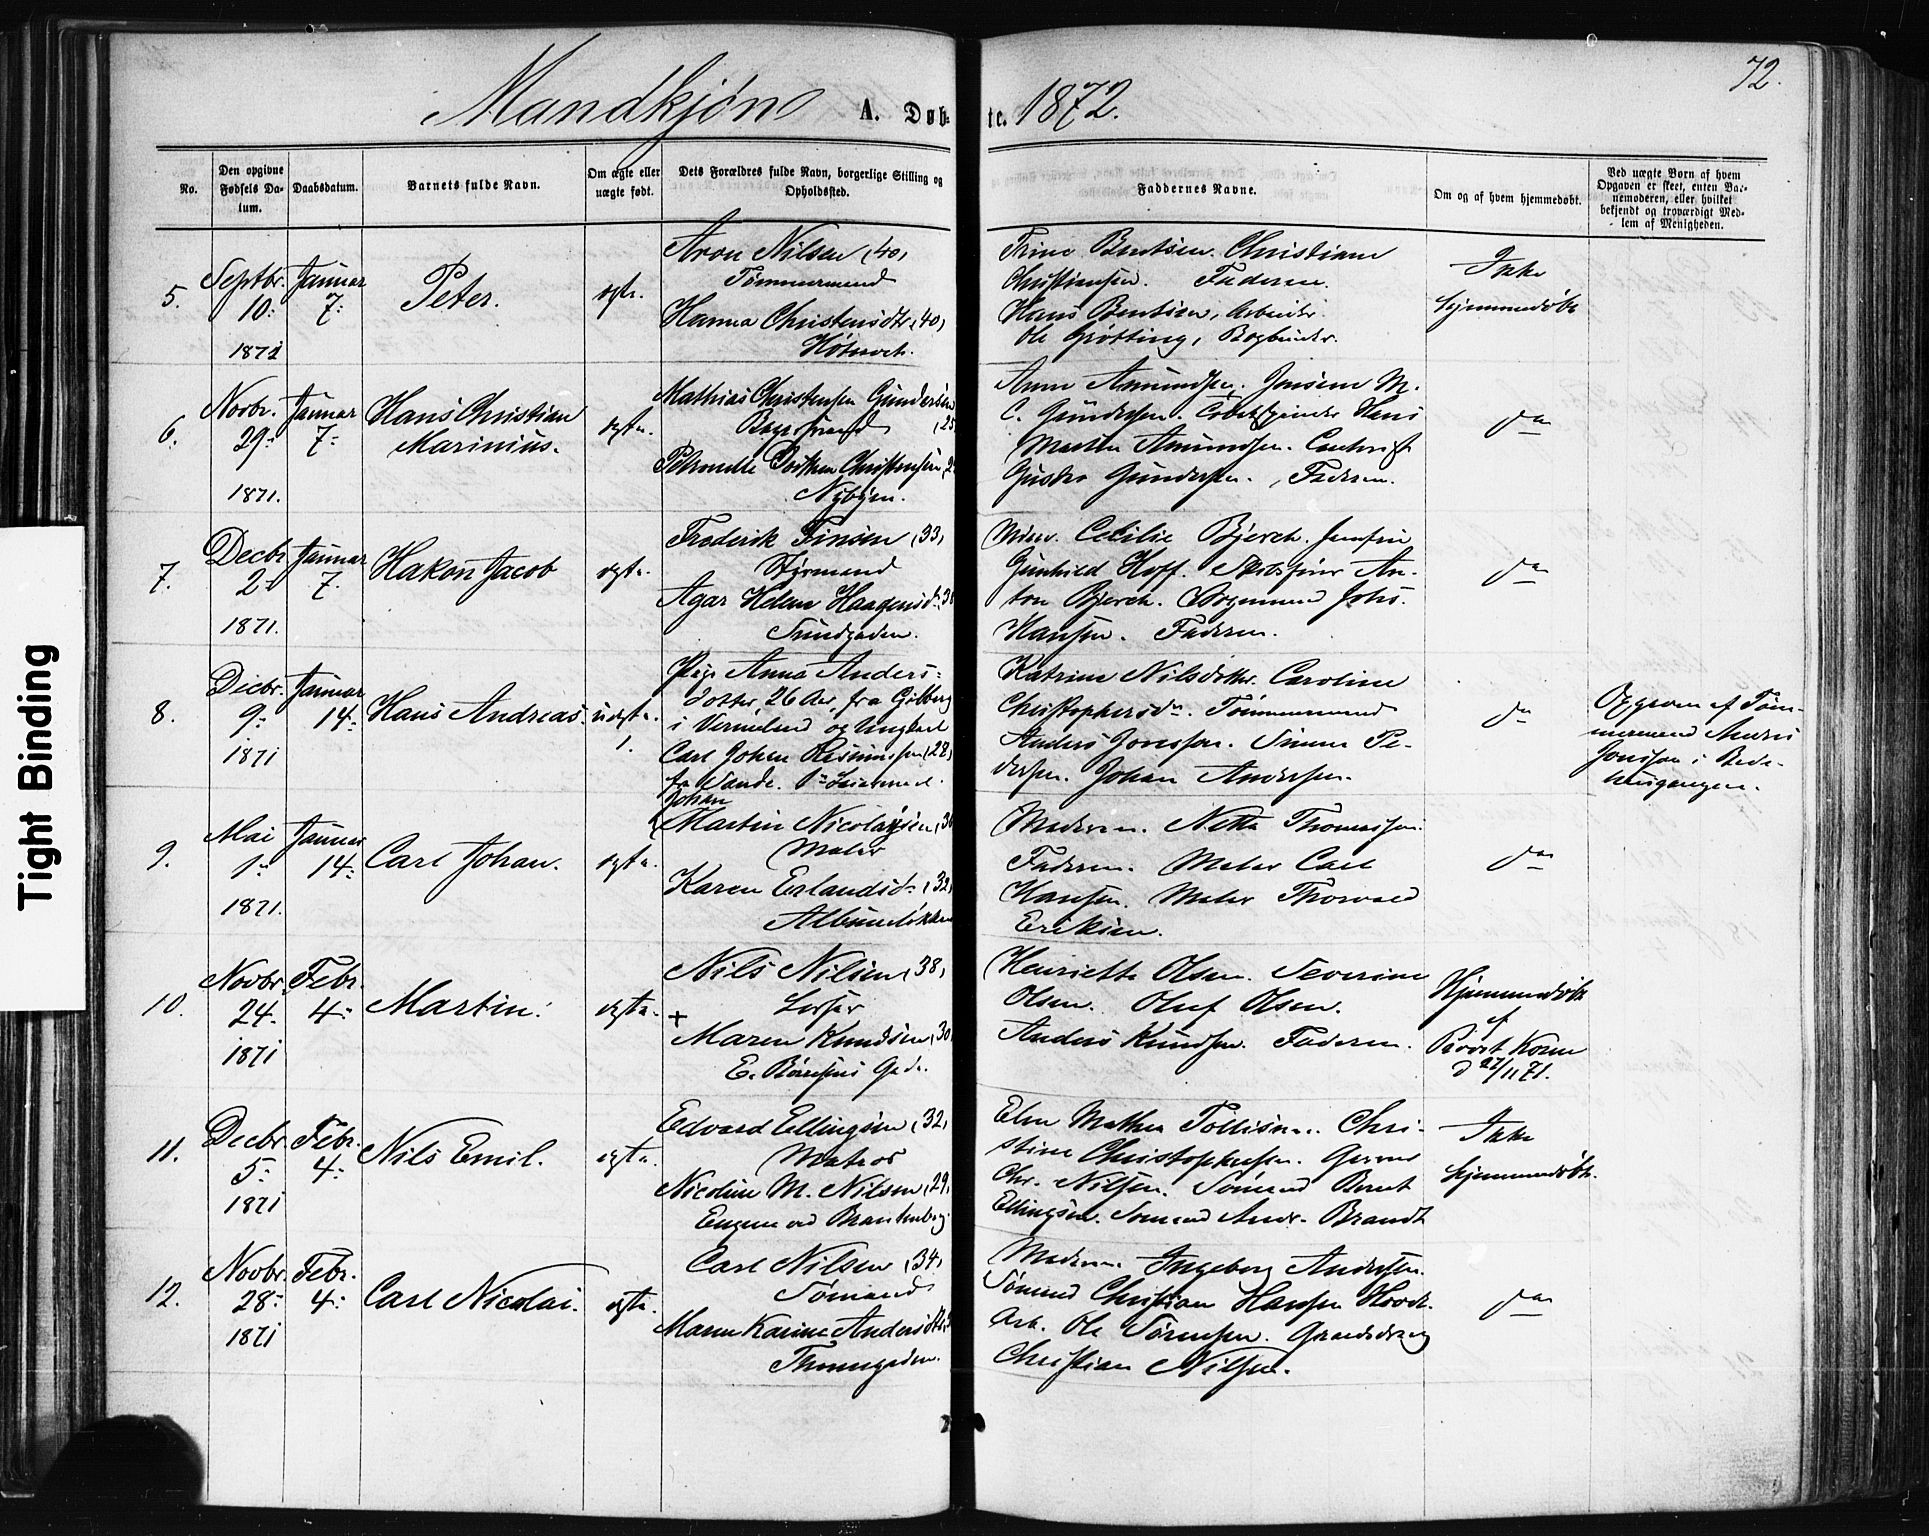 72.
Mandkjøn A. Døb-
te. 1872.
No.
Den opgivne Fødsels Da-
tum.
Daabsdatum.
Barnets fulde Navn.
Om ægte eller
uægte født.
Dets Forældres fulde Navn, borgerlige Stilling og
Opholdssted.
Faddernes Navne.
Om og af hvem hjemmedøbt.
Ved uægte Born af hvem
Opgaven er skeet, enten Bar-
nemoderen, eller hvilket
bekjendt og troværdigt Med-
lem af Menigheden.
5.
Septbr.
10.
1871
Januar
7.
Peter.
ægte.
Aron Nilsen, 40,
Tømmermand
Hanna Christensdtr, 40,
Trine Berntsen. Christiane
Christiansen. Faderen.
Hans Berntsen, Arbeider.
Ole Grøtting, Bogbinder.
Ikke
hjemmedøbt
6.
Novbr.
29.
1871.
Januar
7.
Hans Christian
Marinius.
ægte.
Mathias Christensen Gundersen
25
Nybyen.
Anne Amundsen. Jensine M.
C. Gundersen. Hans
Martin Amundsen.
Gustav Gundersen. Faderen.
do
7.
Decbr
2.
1871.
Januar
7.
Hakon Jacob
ægte.
Frederik Finsen, 33,
Styrmand
Agar Helene Haagensd.
Sundgaden.
Cecilie Bjerch. Jomfru
Gunhild Hoff. An-
ton Bjerch. Johs.
Hansen. Faderen.
do
8.
Decbr.
9.
1871
Januar
14.
Hans Andreas.
uægte.
1.
Pige Anna Anders-
dotter, 26 Aar, fra
i Vermeland og Ungkarl
Carl Johan 28,
fra Sande.
Katrine Nilsdotter. Caroline
Christophersd. Tømmermand
Anders Jonsson. Pe-
dersen. Johan Andersen.
do
Opgiven af Tøm-
mermand Anders
Jonsson i Bede-
husgangen.
9.
Mai
1.
1871.
Januar
14.
Carl Johan.
ægte.
Johan
Martin Nicolaysen,
Maler
Karen Erlandsd. 32,
Moderen. Netta Thomassen.
Faderen. Maler Carl
Hansen. Maler Thorvald
Eriksen.
do
10.
Novbr.
24.
1871
Febr.
4.
Martin.
ægte.
Nils Nilsen, 38,
Losser
+
Maren Knudsen, 30,
E. Børresens Gade.
Henriette Olsen. Severine
Olsen. Oluf Olsen.
Anders Knudsen. Faderen.
Hjemmedøbt
af
Provst
d 27/11 71.
11.
Decbr
5.
1871
Febr.
4.
Nils Emil.
ægte.
Edvard Ellingsen, 32,
Matros
Nicoline M. Nilsen, 29,
Engene ved Brantenborg.
Elen Mathea Tollisen. Chri-
stine Christophersen.
Chr. Nilsen. Sømand Bernt
Ellingsen. Sømand Andr. Brandt
Ikke
hjemmedøbt.
12.
Novbr.
28.
1871
Febr.
4.
Carl Nicolai.
ægte.
Carl Nilsen, 34,
Sømand
Maren Karine Andersdtr.
Moderen. Ingeborg Andersen.
Sømand Christian Hansen
Arb. Ole Sørensen.
Christian Nilsen.
do
Tight Binding